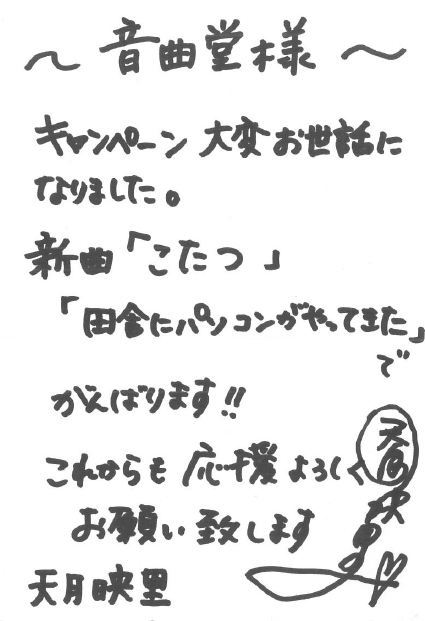 ～ 音曲堂様 ～
キャンペーン 大変お世話に
なりました。
新曲「こたつ」
「田舎にパソコンがやってきた」
で
がんばります!!
これからも 応援 よろしく
お願い致します
天月映里